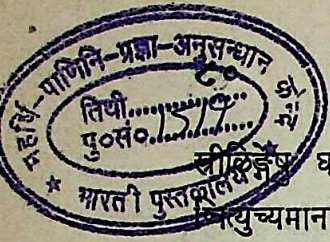 महर्षि-पाणिनि-प्रज्ञा-अनुसन्धान
तिथी..................
पु०सं०..1519..........
भारती पुस्तकालय
स्त्रीलिङ्गेषु
त्युच्यमान